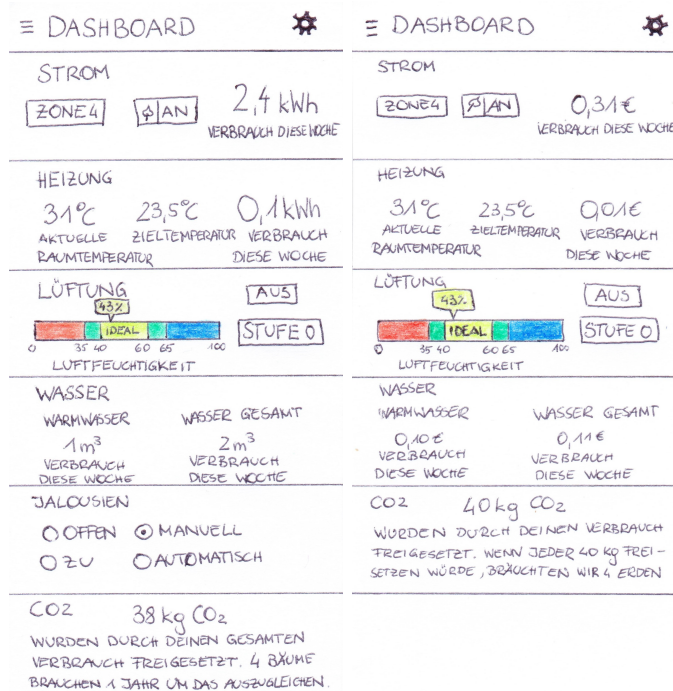 DASHBOARD
STROM
ZONE4
AN
2,4 kWh
VERBRAUCH DIESE WOCHE
HEIZUNG
31°C
23,5°C
0,1kWh
AKTUELLE
RAUMTEMPERATUR
ZIELTEMPERATUR
VERBRAUCH
DIESE WOCHE
LÜFTUNG
43%
AUS
IDEAL
STUFE 0
0 35 40 60 65 100
LUFTFEUCHTIGKEIT
WASSER
WARMWASSER
1m³
VERBRAUCH
DIESE WOCHE
WASSER GESAMT
2m³
VERBRAUCH
DIESE WOCHE
JALOUSIEN
OFFEN
MANUELL
ZU
AUTOMATISCH
CO2
38 kg CO2
WURDEN DURCH DEINEN GESAMTEN
VERBRAUCH FREIGESETZT. 4 BÄUME
BRAUCHEN 1 JAHR UM DAS AUSZUGLEICHEN.
DASHBOARD
STROM
ZONE4
AN
0,31€
VERBRAUCH DIESE WOCHE
HEIZUNG
31°C
23,5°C
0,01€
AKTUELLE
RAUMTEMPERATUR
ZIELTEMPERATUR
VERBRAUCH
DIESE WOCHE
LÜFTUNG
43%
AUS
IDEAL
STUFE 0
0 35 40 60 65 100
LUFTFEUCHTIGKEIT
WASSER
WARMWASSER
0,10€
VERBRAUCH
DIESE WOCHE
WASSER GESAMT
0,11€
VERBRAUCH
DIESE WOCHE
CO2
40 kg CO2
WURDEN DURCH DEINEN VERBRAUCH
FREIGESETZT. WENN JEDER 40 kg FREI-
SETZEN WÜRDE, BRÄUCHTEN WIR 4 ERDEN